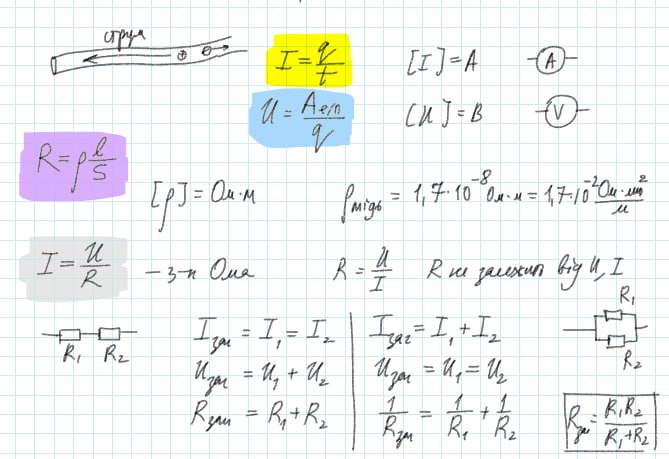 струм
I = q/t
[I] = А
A
U = Aел/q
[U] = В
V
R = ρ l/S
[ρ] = Ом·м
ρмідь = 1,7·10⁻⁸ Ом·м = 1,7·10⁻² Ом·мм²/м
I = U/R
– з-н Ома
R = U/I
R не залежить від U, I
R₁ R₂
Iзаг = I₁ = I₂
Uзаг = U₁ + U₂
Rзаг = R₁ + R₂
Iзаг = I₁ + I₂
Uзаг = U₁ = U₂
1/Rзаг = 1/R₁ + 1/R₂
R₁
R₂
Rзаг = R₁R₂/(R₁+R₂)